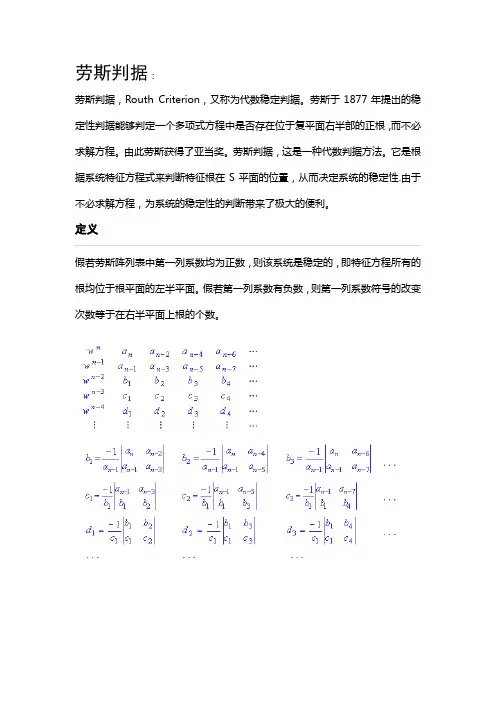 劳斯判据：
劳斯判据，Routh Criterion，又称为代数稳定判据。劳斯于 1877 年提出的稳
定性判据能够判定一个多项式方程中是否存在位于复平面右半部的正根，而不必
求解方程。由此劳斯获得了亚当奖。劳斯判据，这是一种代数判据方法。它是根
据系统特征方程式来判断特征根在 S 平面的位置，从而决定系统的稳定性.由于
不必求解方程，为系统的稳定性的判断带来了极大的便利。
定义
假若劳斯阵列表中第一列系数均为正数，则该系统是稳定的，即特征方程所有的
根均位于根平面的左半平面。假若第一列系数有负数，则第一列系数符号的改变
次数等于在右半平面上根的个数。
w^n a_n a_{n-2} a_{n-4} a_{n-6} ⋯
w^{n-1} a_{n-1} a_{n-3} a_{n-5} a_{n-7} ⋯
w^{n-2} b_1 b_2 b_3 b_4 ⋯
w^{n-3} c_1 c_2 c_3 c_4 ⋯
w^{n-4} d_1 d_2 d_3 d_4 ⋯
⋮ ⋮ ⋮ ⋮ ⋮ ⋯
b_1 = -1/a_{n-1} |a_n a_{n-2}; a_{n-1} a_{n-3}| b_2 = -1/a_{n-1} |a_n a_{n-4}; a_{n-1} a_{n-5}| b_3 = -1/a_{n-1} |a_n a_{n-6}; a_{n-1} a_{n-7}| ...
c_1 = -1/b_1 |a_{n-1} a_{n-3}; b_1 b_2| c_2 = -1/b_1 |a_{n-1} a_{n-5}; b_1 b_3| c_3 = -1/b_1 |a_{n-1} a_{n-7}; b_1 b_4| ...
d_1 = -1/c_1 |b_1 b_2; c_1 c_2| d_2 = -1/c_1 |b_1 b_3; c_1 c_3| d_3 = -1/c_1 |b_1 b_4; c_1 c_4| ...
... ... ...